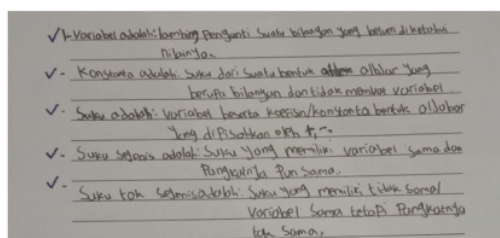 ✓1. Variabel adalah: lambang Pengganti Suatu bilangan yang belum diketahui
nilainya.
✓- Konstanta adalah: suku dari suatu bentuk aljabar yang
berupa bilangan dan tidak memuat variabel
✓- Suku adalah: variabel beserta koefisn/konstanta bentuk aljabar
yang dipisahkan oleh +, -.
✓- Suku sejenis adalah: Suku yang memiliki variabel sama dan
Pangkatnya Pun sama.
✓- Suku tak sejenis adalah: Suku yang memiliki tidak sama/
variabel sama tetapi Pangkatnya
tak sama.